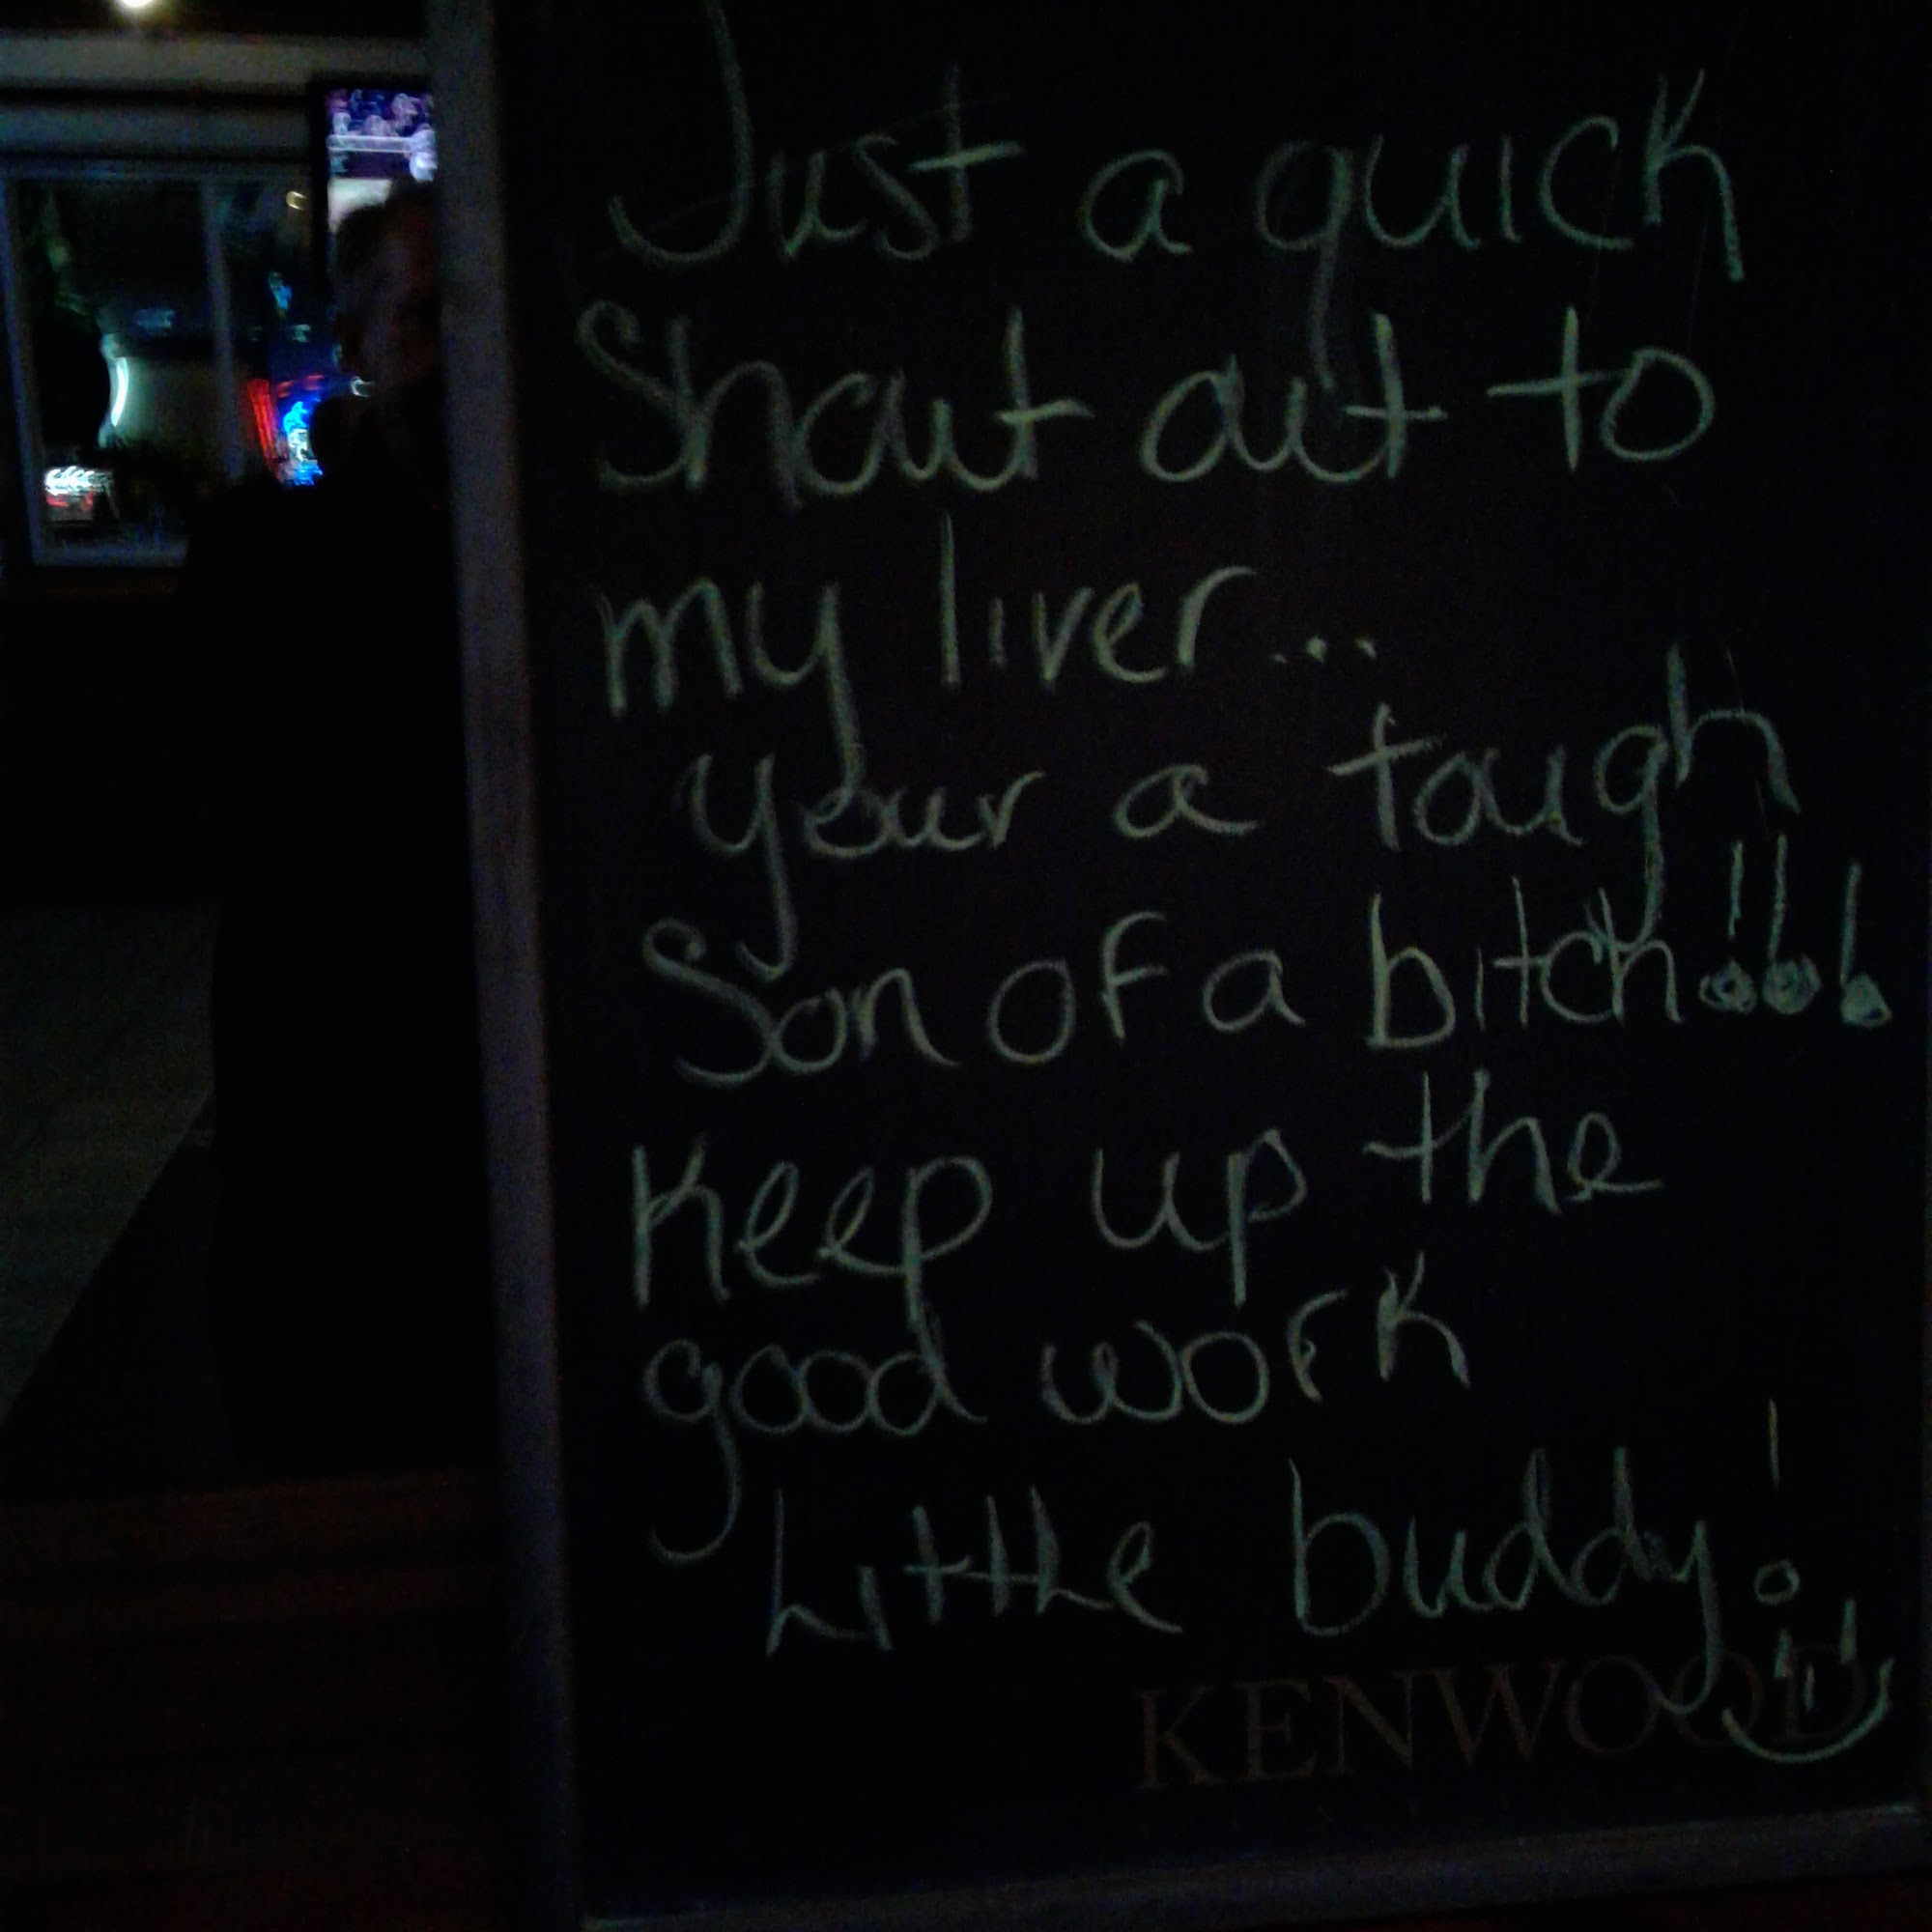 Just a quick
Shout out to
my liver...
your a tough
Son of a bitch!!!
Keep up the
good work
Little buddy!
KENWOOD